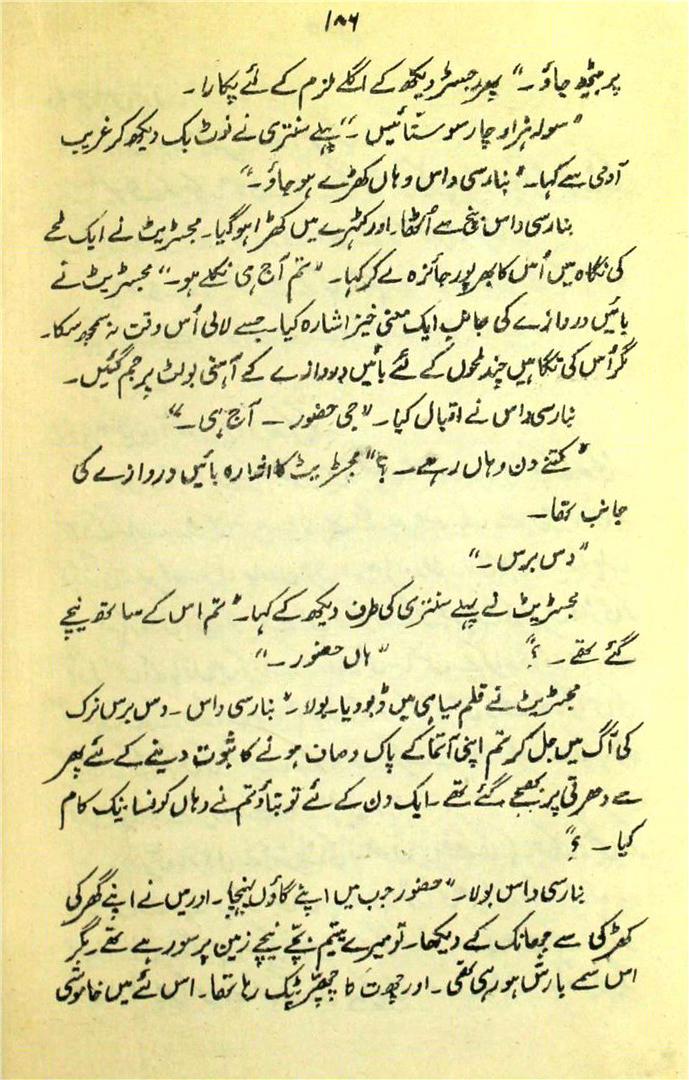 ۱۸۶
پر بیٹھ جاؤ۔" پھر رجسٹر دیکھ کے اگلے ملزم کے لئے پکارا۔
"سولہ ہزار چار سو ستائیس۔" پہلے سنتری نے نوٹ بک دیکھ کر غریب
آدمی سے کہا۔ "بنارسی داس وہاں کھڑے ہو جاؤ۔"
بنارسی داس بنچ سے اُٹھا۔ اور کٹہرے میں کھڑا ہو گیا۔ مجسٹریٹ نے ایک لمحے
کی نگاہ میں اُس کا بھرپور جائزہ لے کر کہا۔ "تم آج ہی نکلے ہو۔" مجسٹریٹ نے
بائیں دروازے کی جانب ایک معنی خیز اشارہ کیا۔ جسے لالی اُس وقت نہ سمجھ سکا۔
مگر اُس کی نگاہیں چند لمحوں کے لئے بائیں دروازے کے آہنی بولٹ پر جم گئیں۔
بنارسی داس نے اقبال کیا۔ "جی حضور ۔ آج ہی۔"
"کتنے دن وہاں رہے۔؟" مجسٹریٹ کا اشارہ بائیں دروازے کی
جانب تھا۔
"دس برس۔"
مجسٹریٹ نے پہلے سنتری کی طرف دیکھ کے کہا۔ "تم اس کے ساتھ نیچے
گئے تھے۔؟" "ہاں حضور۔"
مجسٹریٹ نے قلم سیاہی میں ڈبو دیا۔ بولا۔ "بنارسی داس۔ دس برس نرک
کی آگ میں جل کر تم اپنی آتما کے پاک و صاف ہونے کا ثبوت دینے کے لئے پھر
سے دھرتی پر بھیجے گئے تھے۔ ایک دن کے لئے تو بتاؤ تم نے وہاں کونسا نیک کام
کیا۔؟"
بنارسی داس بولا۔ "حضور جب میں اپنے گاؤں پہنچا۔ اور میں نے اپنے گھر کی
کھڑکی سے جھانک کے دیکھا۔ تو میرے یتیم بچے نیچے زمین پر سو رہے تھے۔ مگر
اس سمے بارش ہو رہی تھی۔ اور چھت کا چھپّر ٹپک رہا تھا۔ اس لئے میں خاموشی